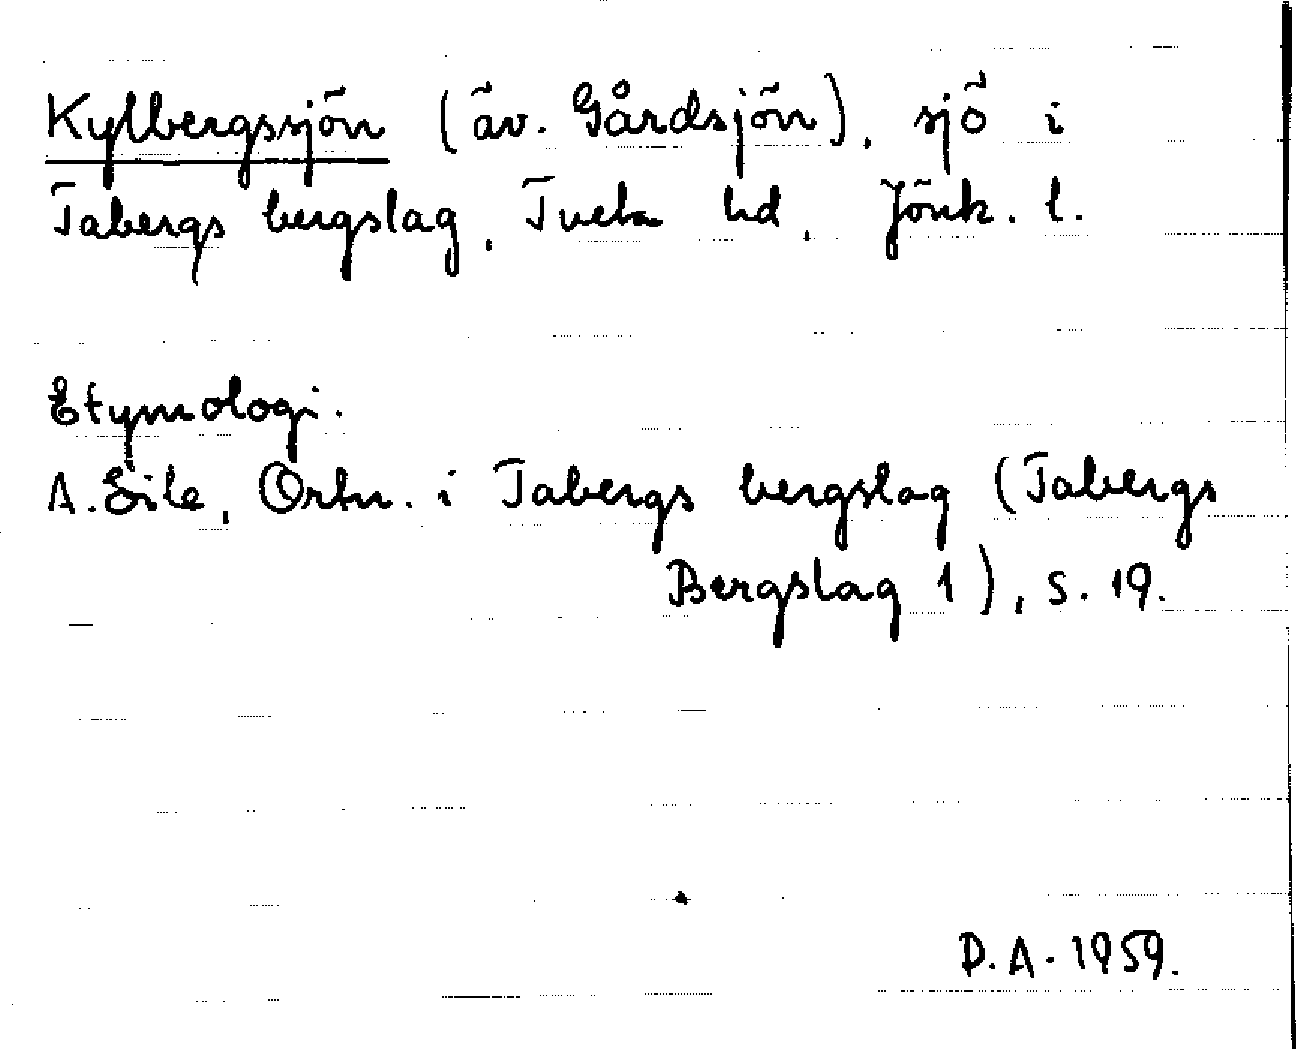 Kylbergssjön (äv. Gårdsjön), sjö i
Tabergs bergslag, Tveta hd, Jönk. l.
Etymologi.
A. Eile, Ortn. i Tabergs bergslag (Tabergs
Bergslag 1), s. 19.
D.A. 1959.